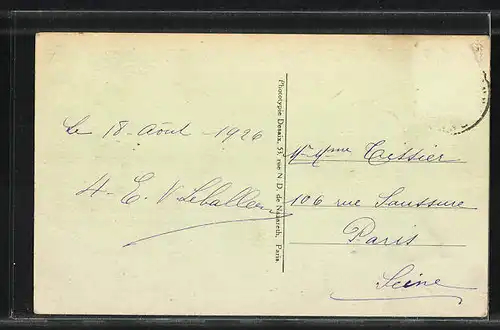 Le 18 Août 1926
Phototypie Desaix, 53, rue N. D. de Nazareth, Paris.
Mr Mme Tissier
106 rue Saussure
Paris
Seine